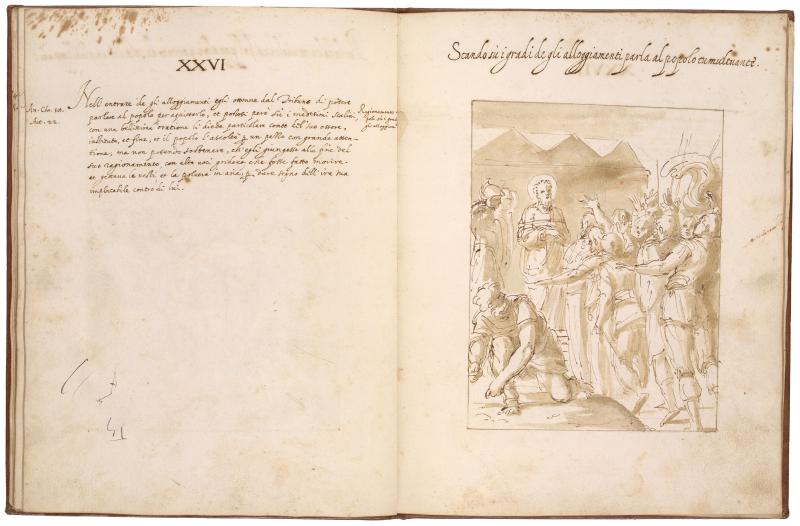 XXVI
An. Chr. 58.
Act. 22.
Nell' entrare de gli alloggiamenti egli ottenne dal Tribuno di potere
parlare al popolo per aquietarlo, et postosi però sù i medesimi scalini,
con una bellissima oratione li diede particolare conto del suo essere,
instituto, et fine, et il popolo l'ascoltò p un pezzo con grande atten
tione, ma non potendo sostenere, ch' egli giungesse alla fine del
suo ragionamento, con alte voci gridava che fosse fatto morire
et gettava le vesti et la polvere in aria, p dare segno dell' ira sua
implacabile contro di lui.
Ragionamento
gli alloggiam
Stando sù i gradi de gli alloggiamenti parla al popolo tumultuante.